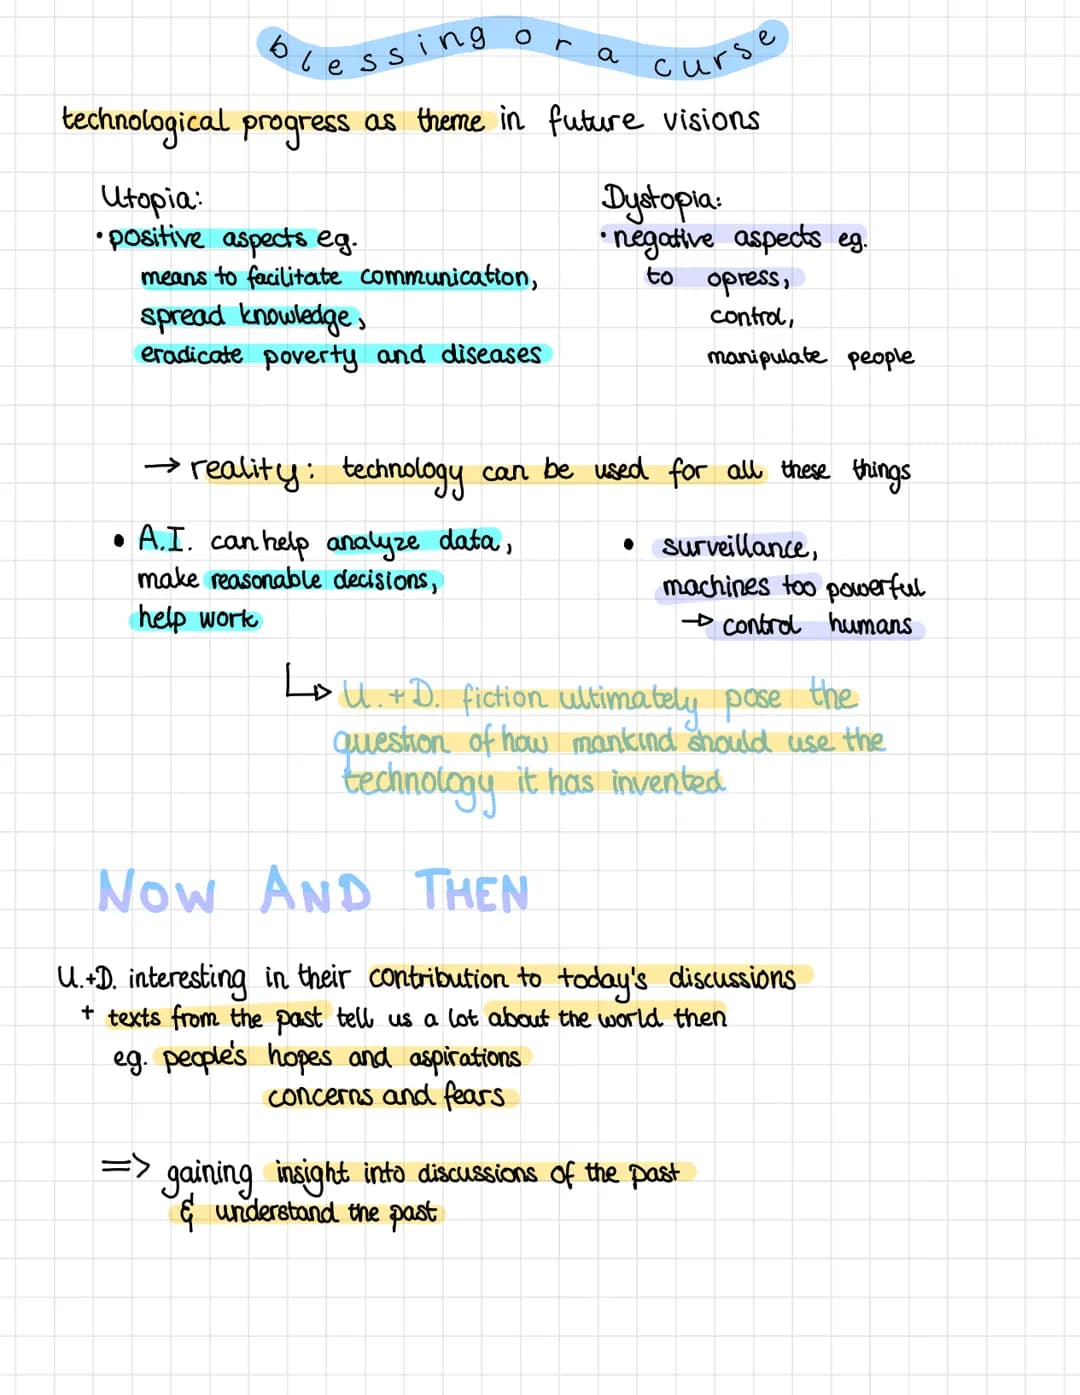 blessing or a curse
technological progress as theme in future visions
Utopia:
• positive aspects eg.
means to facilitate communication,
spread knowledge,
eradicate poverty and diseases
Dystopia:
• negative aspects eg.
to opress,
control,
manipulate people
→ reality: technology can be used for all these things
• A.I. can help analyze data,
make reasonable decisions,
help work
• surveillance,
machines too powerful
→ control humans
↳ U. + D. fiction ultimately pose the
question of how mankind should use the
technology it has invented
NOW AND THEN
U.+D. interesting in their contribution to today's discussions
+ texts from the past tell us a lot about the world then
eg. people's hopes and aspirations
concerns and fears
=> gaining insight into discussions of the past
& understand the past